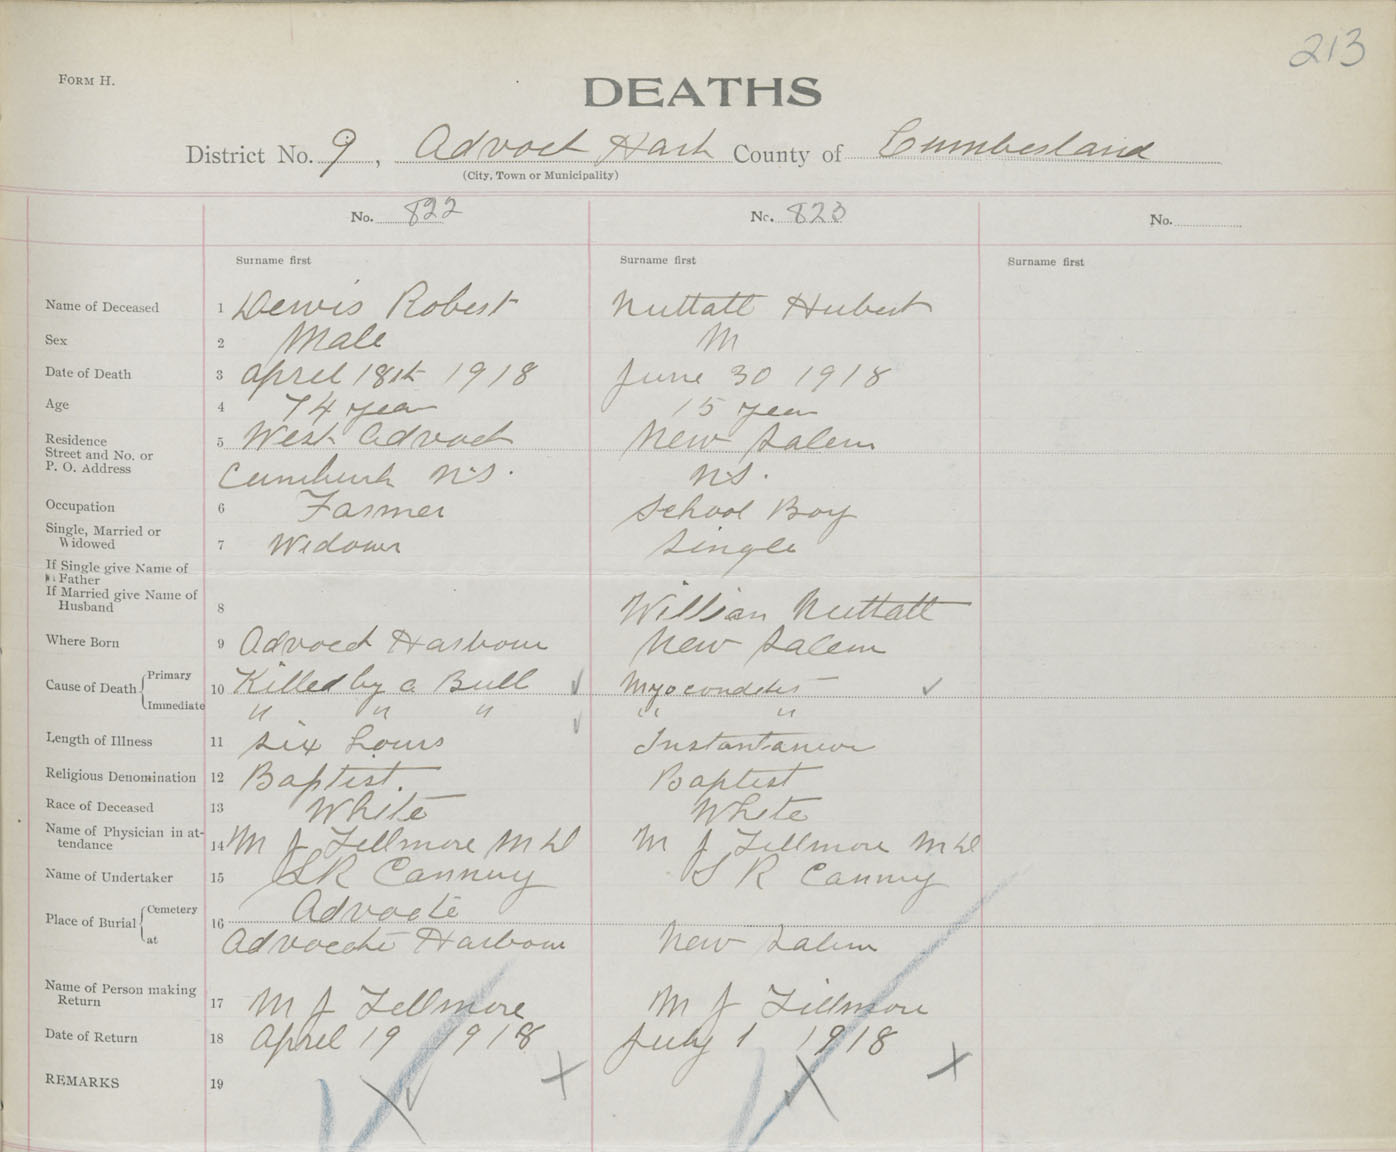 213
FORM H.
DEATHS
District No. 9, Advoct Harb County of Cumberland
(City, Town or Municipality)
No. 822 No. 823 No.
Surname first Surname first Surname first
Name of Deceased 1 Dewis Robert Nuttall Hubert
Sex 2 Male M
Date of Death 3 April 18th 1918 June 30 1918
Age 4 74 year 15 year
Residence 5 West Advoct New Salem
Street and No. or
P. O. Address Cumb N.S. N.S.
Occupation 6 Farmer School Boy
Single, Married or
Widowed 7 Widower Single
If Single give Name of
Father
If Married give Name of
Husband 8 William Nuttall
Where Born 9 Advoct Harbour New Salem
Cause of Death Primary 10 Killed by a Bull Myocardites
Immediate " " " " "
Length of Illness 11 Six hours Instantaneou
Religious Denomination 12 Baptist. Baptist
Race of Deceased 13 White White
Name of Physician in at-
tendance 14 M J Fillmore MD M J Fillmore MD
Name of Undertaker 15 S R Canning S R Canning
Place of Burial Cemetery 16 Advocte
at Advocate Harbour New Salem
Name of Person making
Return 17 M J Fillmore M J Fillmore
Date of Return 18 April 19 1918 July 1 1918
REMARKS 19